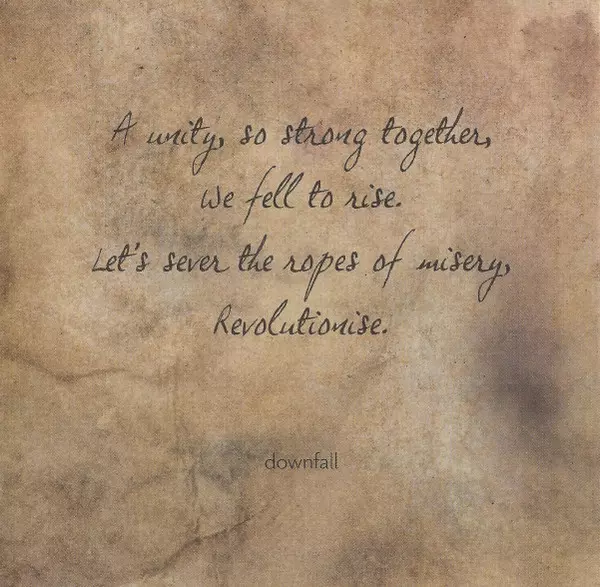 A unity, so strong together,
We fell to rise.
Let's sever the ropes of misery,
Revolutionise.
downfall